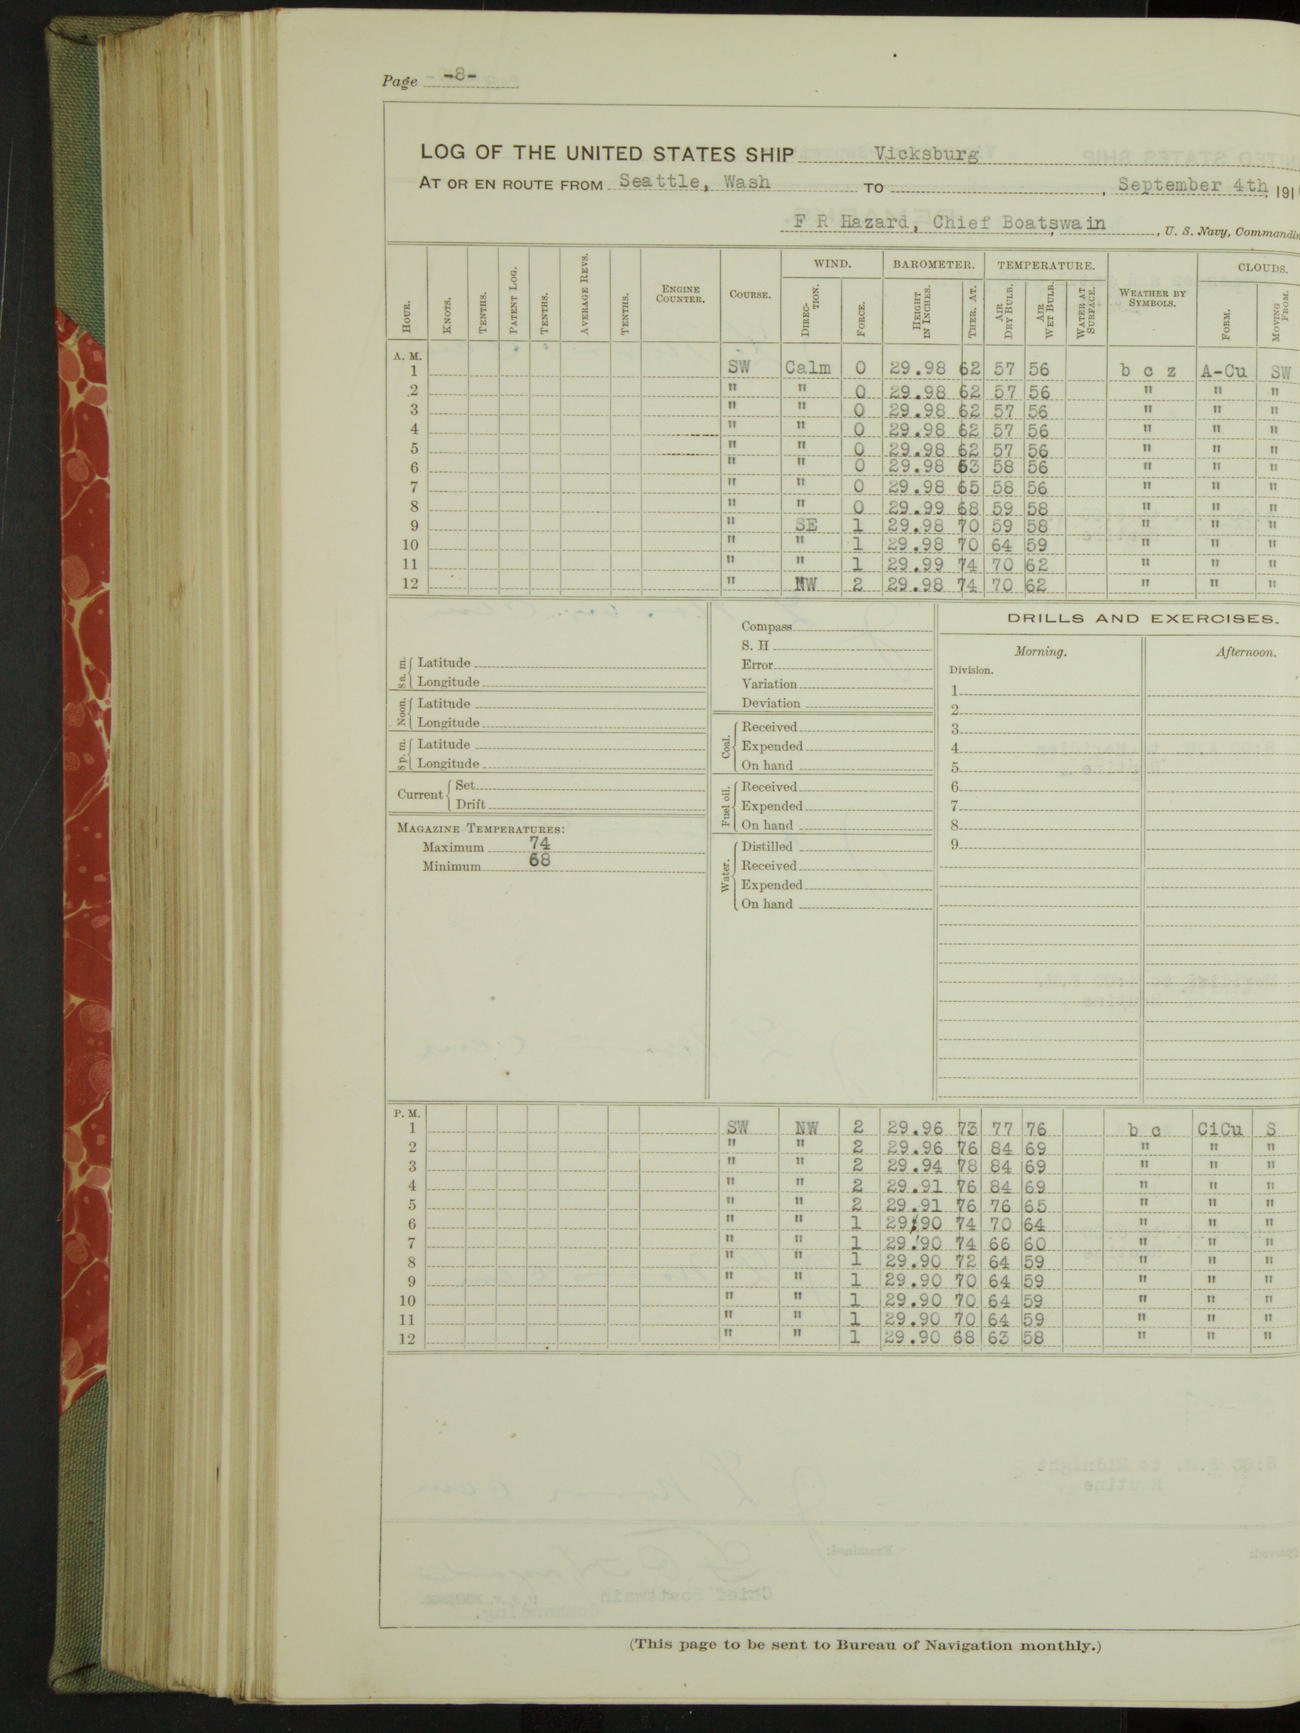 Page -8-
LOG OF THE UNITED STATES SHIP Vicksburg
AT OR EN ROUTE FROM Seattle, Wash TO , September 4th, 191
F R Hazard, Chief Boatswain , U. S. Navy, Commanding
WIND. BAROMETER. TEMPERATURE. CLOUDS.
HOUR. KNOTS. TENTHS. PATENT LOG. TENTHS. AVERAGE REVS. TENTHS. ENGINE COUNTER. COURSE. DIRECTION. FORCE. HEIGHT IN INCHES. THER. AT. AIR DRY BULB. AIR WET BULB. WATER AT SURFACE. WEATHER BY SYMBOLS. FORM. MOVING FROM.
A. M.
1 SW Calm 0 29.98 62 57 56 b c z A-Cu SW
2 " " 0 29.98 62 57 56 " " "
3 " " 0 29.98 62 57 56 " " "
4 " " 0 29.98 62 57 56 " " "
5 " " 0 29.98 62 57 56 " " "
6 " " 0 29.98 63 58 56 " " "
7 " " 0 29.98 65 58 56 " " "
8 " " 0 29.99 68 59 58 " " "
9 " SE 1 29.98 70 59 58 " " "
10 " " 1 29.98 70 64 59 " " "
11 " " 1 29.99 74 70 62 " " "
12 " NW 2 29.98 74 70 62 " " "
8 a. m. Latitude
Longitude
Noon. Latitude
Longitude
8 p. m. Latitude
Longitude
Current Set
Drift
MAGAZINE TEMPERATURES:
Maximum 74
Minimum 68
Compass
S. H
Error
Variation
Deviation
Coal. Received
Expended
On hand
Fuel oil. Received
Expended
On hand
Water. Distilled
Received
Expended
On hand
DRILLS AND EXERCISES.
Morning. Afternoon.
Division.
1
2
3
4
5
6
7
8
9
P. M.
1 SW NW 2 29.96 73 77 76 b c CiCu S
2 " " 2 29.96 76 84 69 " " "
3 " " 2 29.94 78 84 69 " " "
4 " " 2 29.91 76 84 69 " " "
5 " " 2 29.91 76 76 65 " " "
6 " " 1 29.90 74 70 64 " " "
7 " " 1 29.90 74 66 60 " " "
8 " " 1 29.90 72 64 59 " " "
9 " " 1 29.90 70 64 59 " " "
10 " " 1 29.90 70 64 59 " " "
11 " " 1 29.90 70 64 59 " " "
12 " " 1 29.90 68 63 58 " " "
(This page to be sent to Bureau of Navigation monthly.)